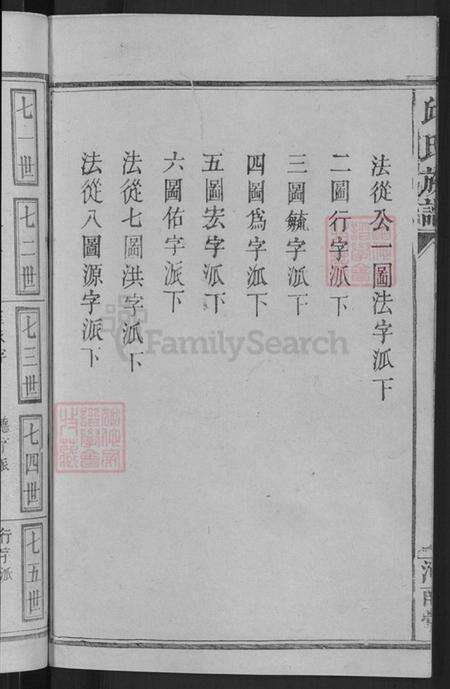 邱氏族譜
法從公一圖法字派下
二圖行字派下
三圖毓字派下
四圖為字派下
五圖宏字派下
六圖佑字派下
法從七圖洪字派下
法從八圖源字派下
七一世
七二世
七三世
七四世
七五世
行字派
FamilySearch